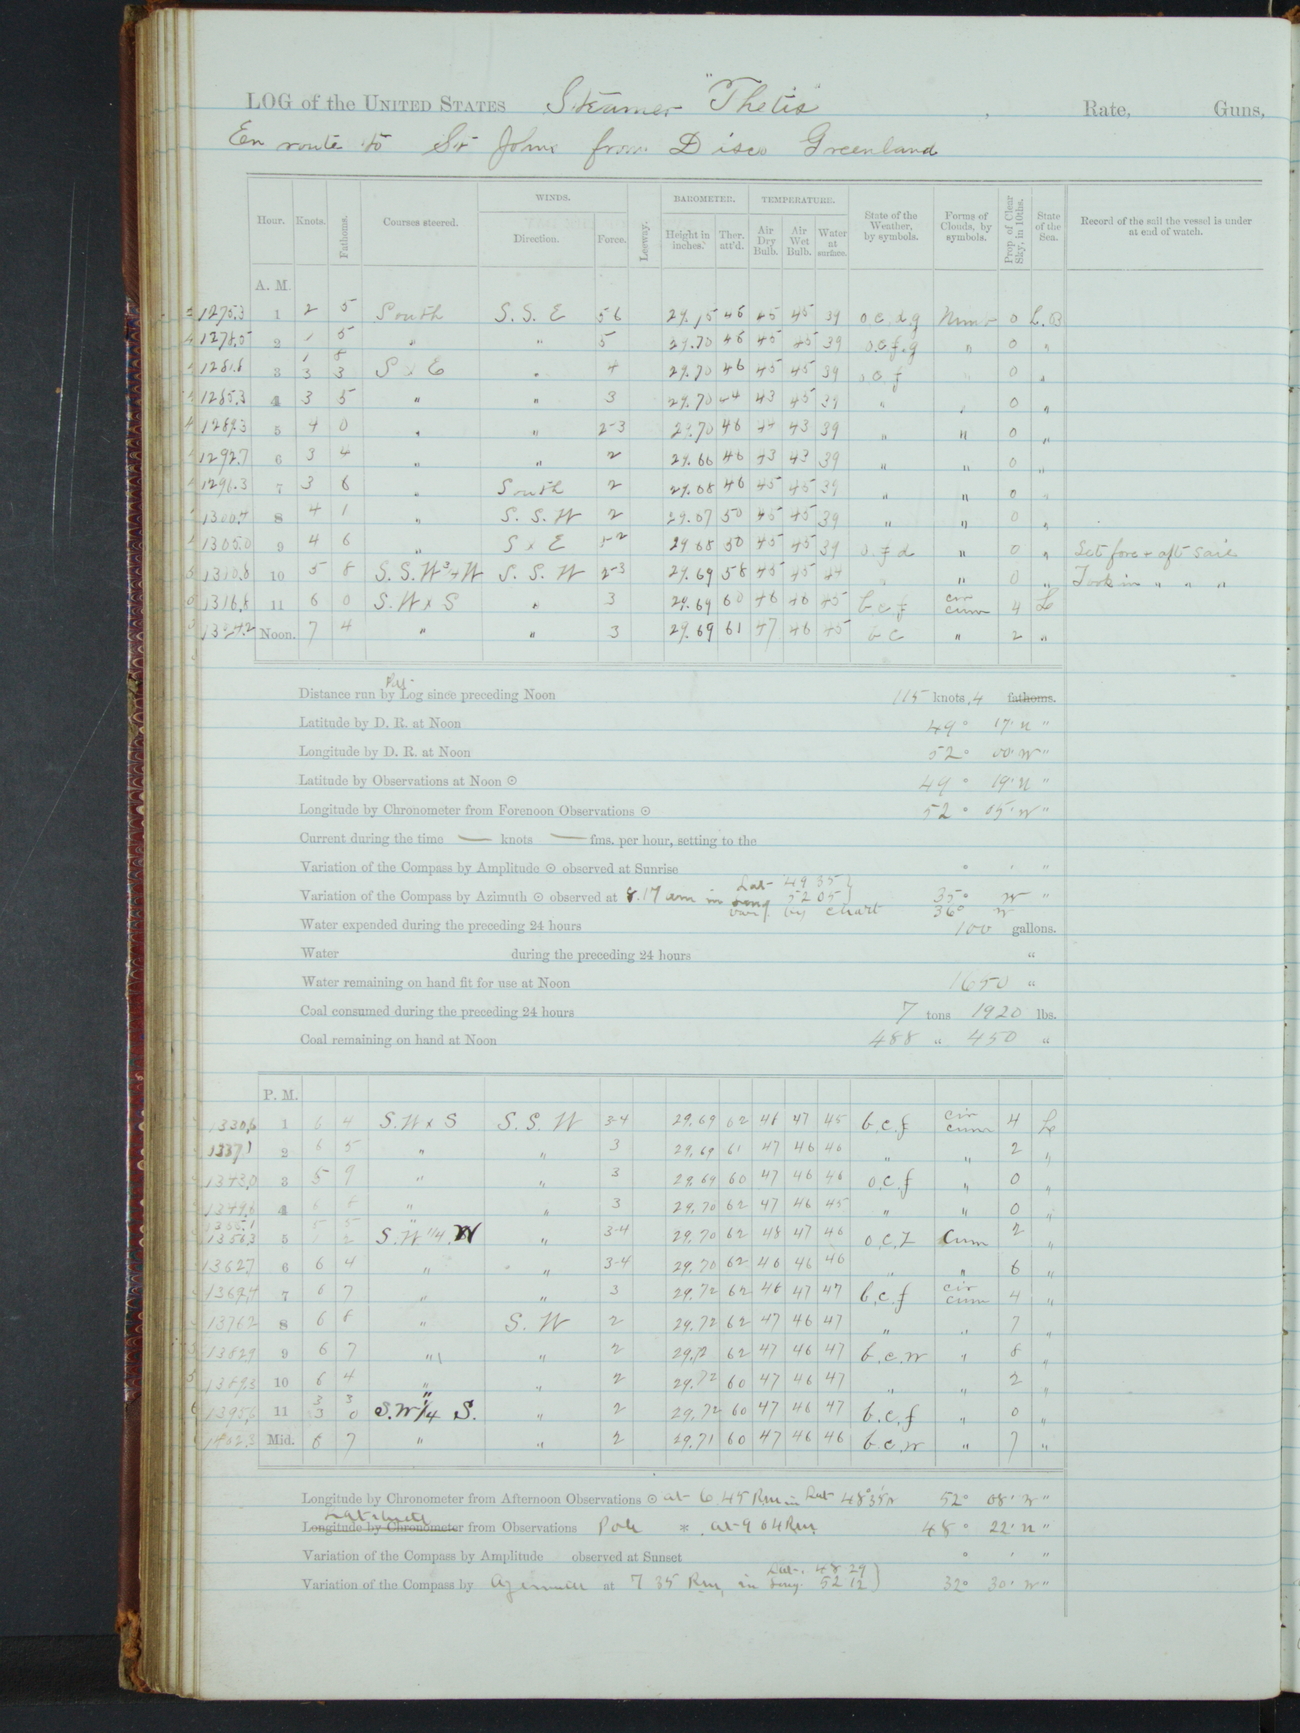 LOG of the UNITED STATES Steamer "Thetis", Rate, Guns,
En route to St Johns from Disco Greenland
Hour. Knots. Fathoms. Courses steered. WINDS. Direction. Force. Leeway. BAROMETER. Height in inches. Ther. att'd. TEMPERATURE. Air Dry Bulb. Air Wet Bulb. Water at surface. State of the Weather, by symbols. Forms of Clouds, by symbols. Prop. of Clear Sky, in 10ths. State of the Sea. Record of the sail the vessel is under at end of watch.
A. M.
1275.3 1 2 5 South S. S. E 5 6 29.15 46 45 45 39 o.c.d.g Nim 0 L.B
1278.5 2 1 5 " " 5 29.70 46 45 45 39 o.c.f.g " 0 "
1281.8 3 1 8 3 3 S x E " 4 29.70 46 45 45 39 o c f 0 "
1285.3 4 3 5 " " 3 29.70 44 43 45 39 " " 0 "
1289.3 5 4 0 " " 2-3 29.70 46 44 43 39 " " 0 "
1292.7 6 3 4 " " 2 29.66 46 43 43 39 " " 0 "
1296.3 7 3 6 " South 2 29.68 46 45 45 39 " " 0 "
1300.4 8 4 1 " S. S. W 2 29.67 50 45 45 39 " " 0 "
1305.0 9 4 6 " S x E 29.68 50 45 45 39 o.f.d " 0 " Set fore + aft sail
1310.8 10 5 8 S. S. W 3/4 W S. S. W 2-3 29.69 58 45 45 44 " " 0 " Took in " " "
1316.8 11 6 0 S. W x S " 3 29.69 60 46 46 45 b c f cir cum 4 L
1324.2 Noon. 7 4 " " 3 29.69 61 47 46 45 b c " 2 "
Distance run by Pat. Log since preceding Noon 115 knots .4 fathoms.
Latitude by D. R. at Noon 49° 17' N "
Longitude by D. R. at Noon 52° 00' W "
Latitude by Observations at Noon ☉ 49° 19' N "
Longitude by Chronometer from Forenoon Observations ☉ 52° 05' W "
Current during the time — knots — fms. per hour, setting to the
Variation of the Compass by Amplitude ☉ observed at Sunrise ° ' "
Variation of the Compass by Azimuth ☉ observed at 8.17 am in Lat 49 35 Long 52 05 } 35° W "
by chart 36° W
Water expended during the preceding 24 hours 100 gallons.
Water during the preceding 24 hours "
Water remaining on hand fit for use at Noon 1650 "
Coal consumed during the preceding 24 hours 7 tons 1920 lbs.
Coal remaining on hand at Noon 488 " 450 "
P. M.
1330.6 1 6 4 S. W x S S. S. W 3-4 29.69 62 48 47 45 b.c.f cir cum 4 L
1337.1 2 6 5 " " 3 29.69 61 47 46 46 " " 2 "
1343.0 3 5 9 " " 3 29.69 60 47 46 46 o.c.f " 0 "
1349.6 4 6 6 " " 3 29.70 62 47 46 45 " " 0 "
1355.1 1356.3 5 5 5 1 2 S. W 1/4 W " 3-4 29.70 62 48 47 46 o.c.f Cum 2 "
1362.7 6 6 4 " " 3-4 29.70 62 46 46 46 " " 6 "
1369.4 7 6 7 " " 3 29.72 62 48 47 47 b.c.f cir cum 4 "
1376.2 8 6 8 " S. W 2 29.72 62 47 46 47 " " 7 "
1382.9 9 6 7 " " 2 29.72 62 47 46 47 b.c.w " 8 "
1389.3 10 6 4 " " 2 29.72 60 47 46 47 " " 2 "
1395.6 11 3 3 3 0 S. W 1/4 S. " 2 29.72 60 47 46 47 b.c.f " 0 "
1402.3 Mid. 6 7 " " 2 29.71 60 47 46 46 b.c.w " 7 "
Longitude by Chronometer from Afternoon Observations ☉ at 6.45 P.m in Lat 48°35'N 52° 08' W "
Latitude Longitude by Chronometer from Observations Pole * at 9 04 P.m 48° 22' N "
Variation of the Compass by Amplitude observed at Sunset ° ' "
Variation of the Compass by Azimuth at 7 35 P.m, in Lat. 48 29 Long. 52 12 } 32° 30' W "